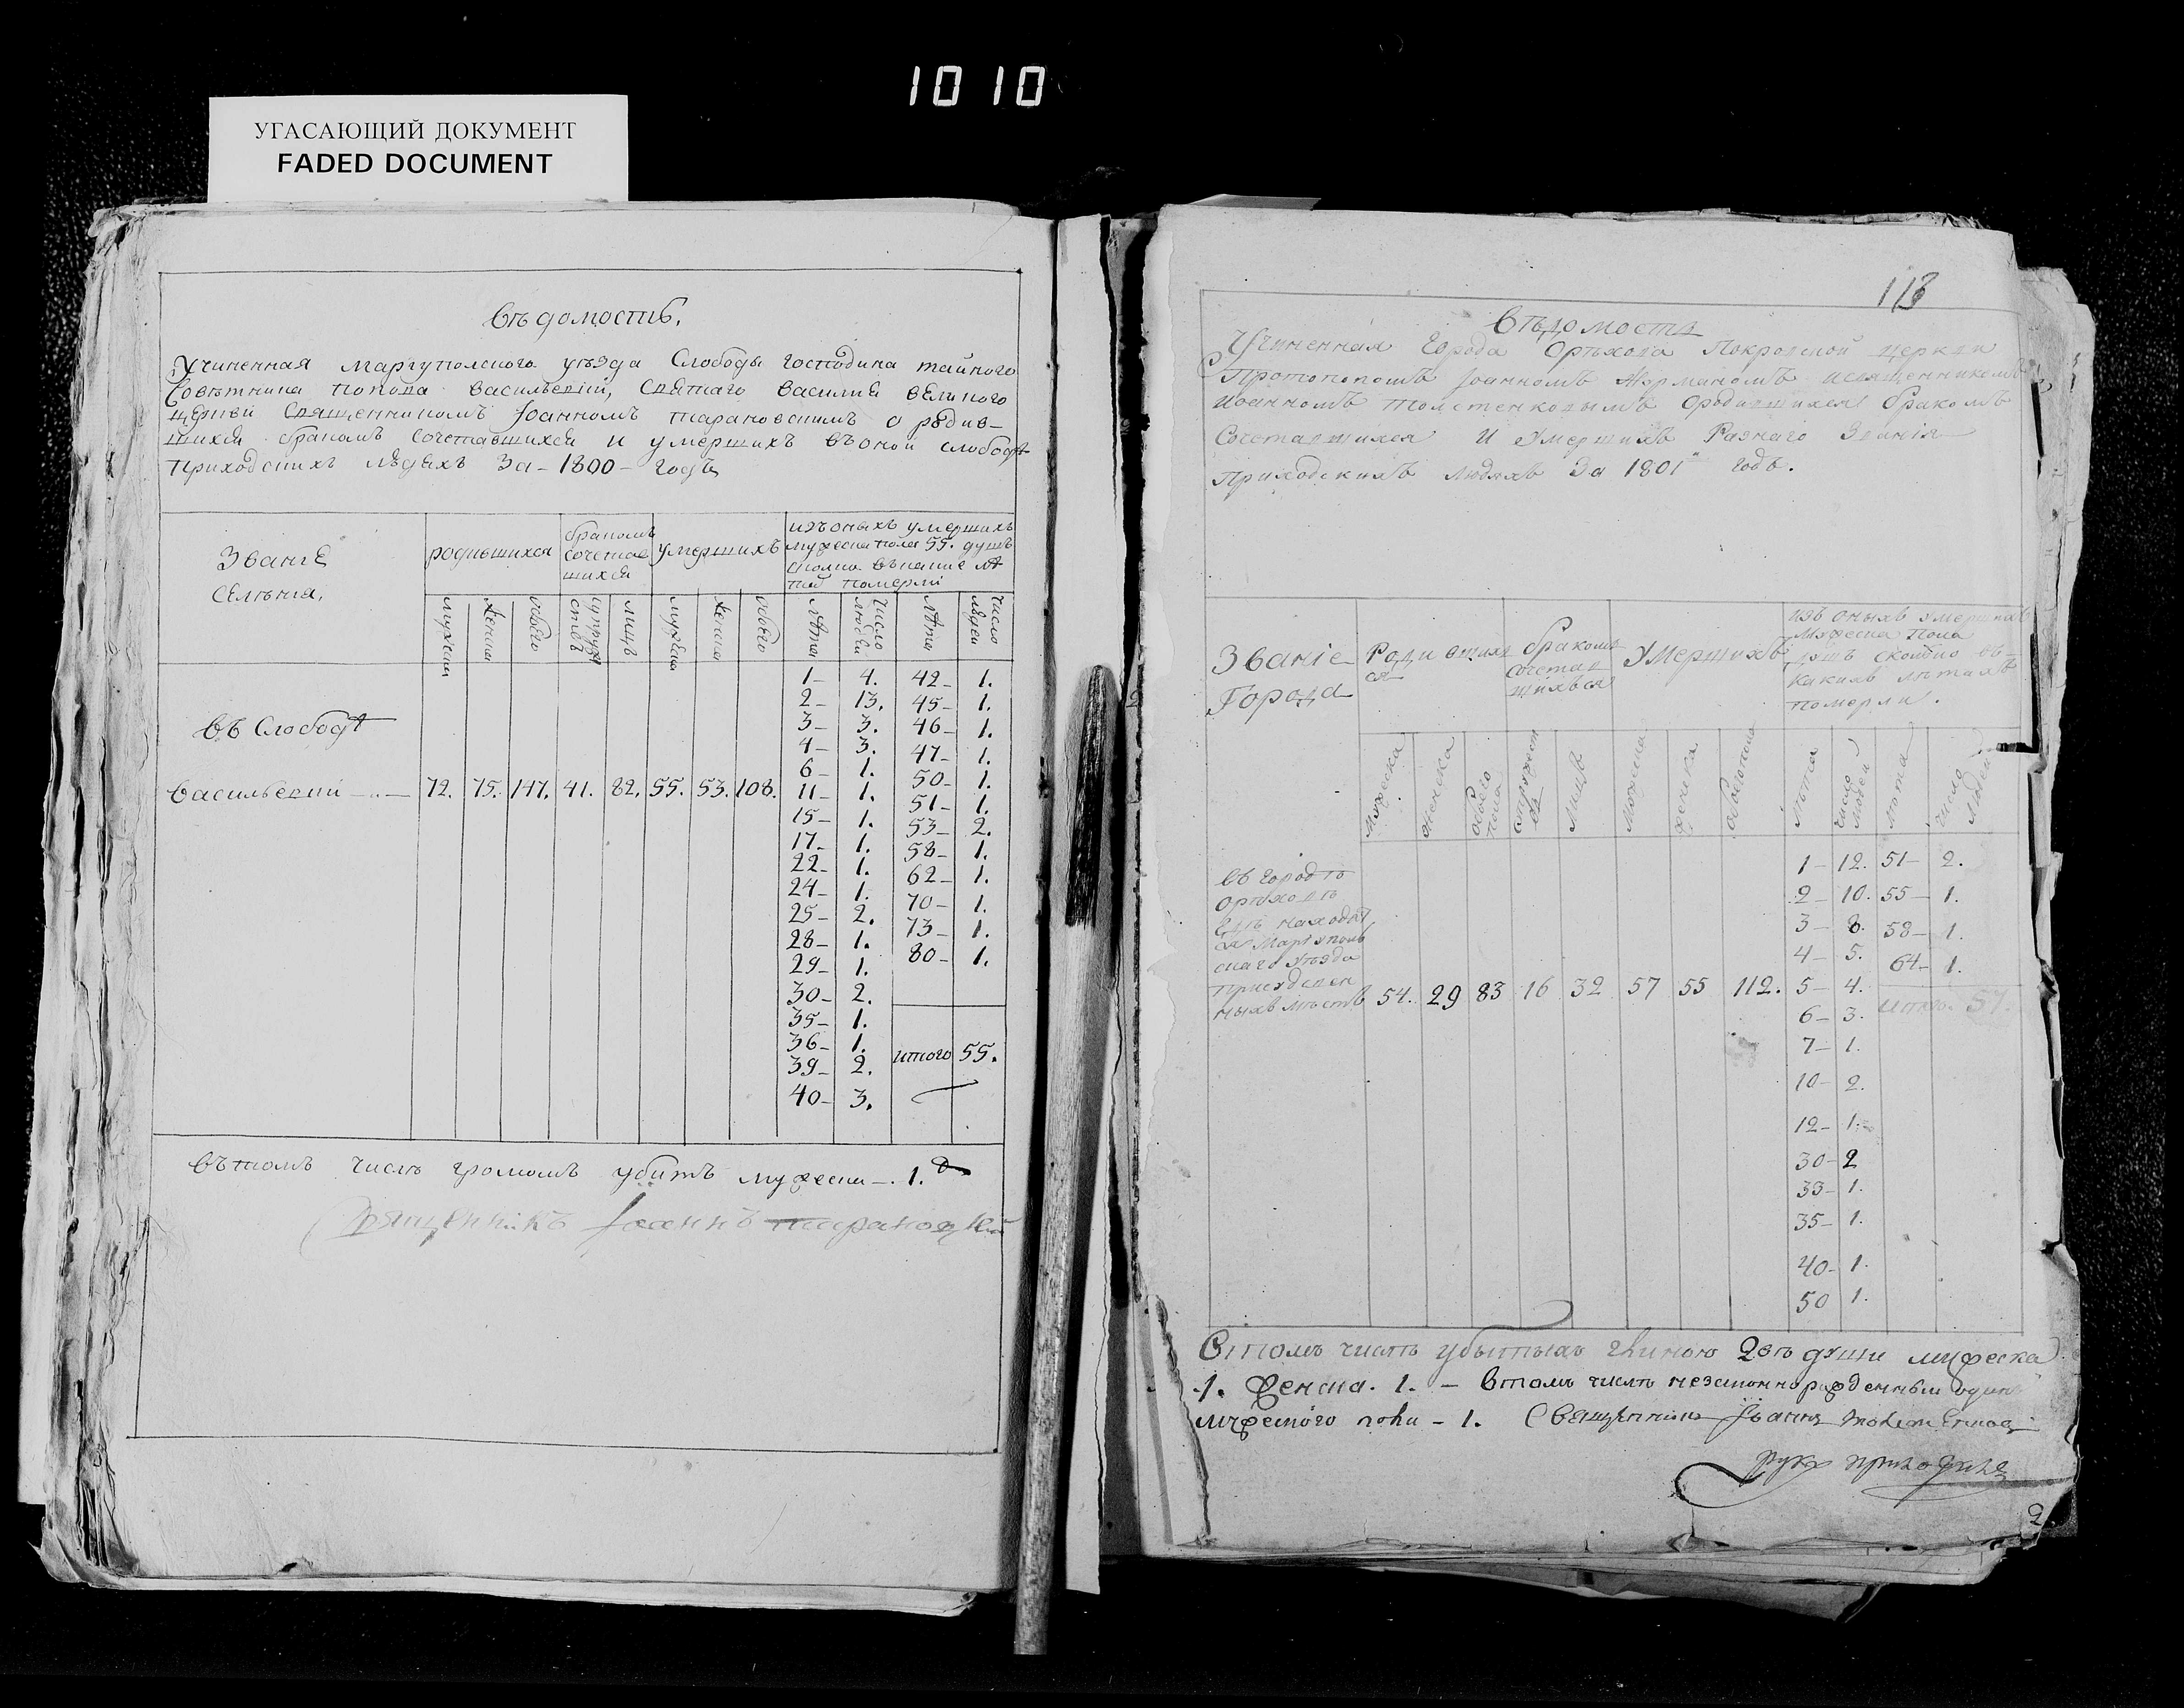 10 10
УГАСАЮЩИЙ ДОКУМЕНТ
FADED DOCUMENT
Вѣдомость,
Учиненная Мариупольского уѣзда Слободы господина тайного
Совѣтника Попова Васильевки, Святаго Василия великого
церкви Священникомъ Іоанномъ Тарановскимъ о родив-
шихся бракомъ сочетавшихся и умершихъ въ оной слободѣ
приходскихъ людяхъ За - 1800 - годъ
Звание
Селения,
родившихся
бракомъ
сочетав
шихся
умершихъ
изъ оныхъ умершихъ
мужеска пола 55. душъ
сколко въ какие лѣ
та померли
мужеска
женска
обоего
супруж
ствъ
лицъ
мужеска
женска
обоего
лѣта
число
людей
лѣта
число
людей
въ Слободѣ
Васильевки — 72. 75. 147. 41. 82. 55. 53. 108.
1 - 4. 42 - 1.
2 - 13. 45 - 1.
3 - 3. 46 - 1.
4 - 3. 47 - 1.
6 - 1. 50 - 1.
11 - 1. 51 - 1.
15 - 1. 53 - 2.
17 - 1. 58 - 1.
22 - 1. 62 - 1.
24 - 1. 70 - 1.
25 - 2. 73 - 1.
28 - 1. 80 - 1.
29 - 1.
30 - 2.
35 - 1.
36 - 1.
39 - 2. итого 55.
40 - 3.
въ томъ числѣ громомъ убитъ мужеска - 1.
Священникъ Іоаннъ Тарановский
118
Вѣдомость
Учиненная Города Орѣхова Покровской церкви
Протопопомъ Іоанномъ и священникомъ
Иоанномъ Толстенковымъ о родившихся бракомъ
Сочетавшихся и умершихъ Разнаго Званія
Приходскихъ людяхъ За 1801 годъ.
Званіе
Города
Родившихъ
ся
бракомъ
сочетав
шихься
Умершихъ
изъ оныхъ умершихъ
мужеска пола
душъ сколко въ
какихъ лѣтахъ
померли.
мужеска
женска
обоего
пола
супружест
въ
лицъ
мужеска
женска
лѣта
число
людей
лѣта
число
людей
въ Городѣ
Орѣховѣ
находят
ся Маріуполь
скаго уѣзда
ныхъ мѣстъ 54. 29 83 16 32 57 55 112.
1 - 12. 51 - 2.
2 - 10. 55 - 1.
3 - 8. 58 - 1.
4 - 5. 64 - 1.
5 - 4. итого. 57.
6 - 3.
7 - 1.
10 - 2.
12 - 1.
30 - 2
33 - 1.
35 - 1.
40 - 1.
50 1.
Втомъ числѣ убытыхъ глиною 2вѣ души мужеска
1. женска. 1. - втомъ числѣ незаконнорожденный одинъ
мужеского пола - 1. Священникъ Іоаннъ
руку приложилъ
2